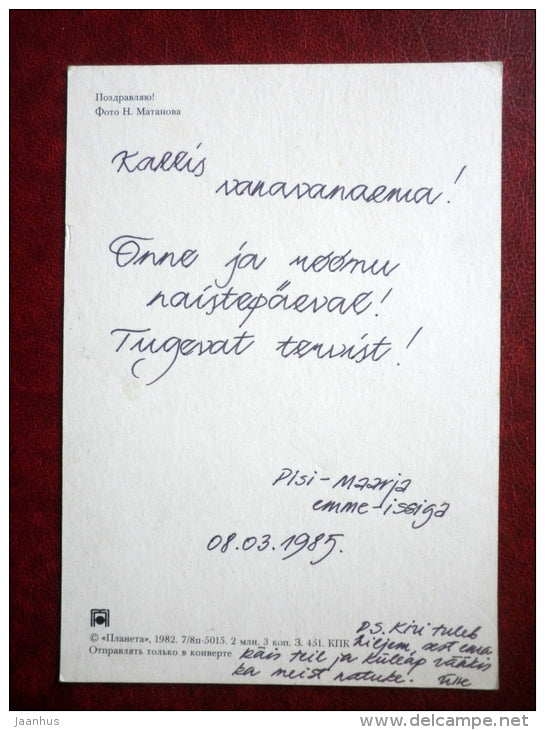 Поздравляю!
Фото Н. Матанова
Kallis
vanavanaema!
Õnne ja rõõmu
naistepäeval!
Tugevat tervist!
Pisi-Maarja
emme-issiga
08.03.1985.
P.S. Kiri tuleb
hiljem, sest ema
© «Планета», 1982. 7/8п-5015. 2 млн. 3 коп. З. 451. КПК
Отправлять только в конверте
käis teil ja küllap rääkis
ka meist natuke.
jaanhus
www.delcampe.net